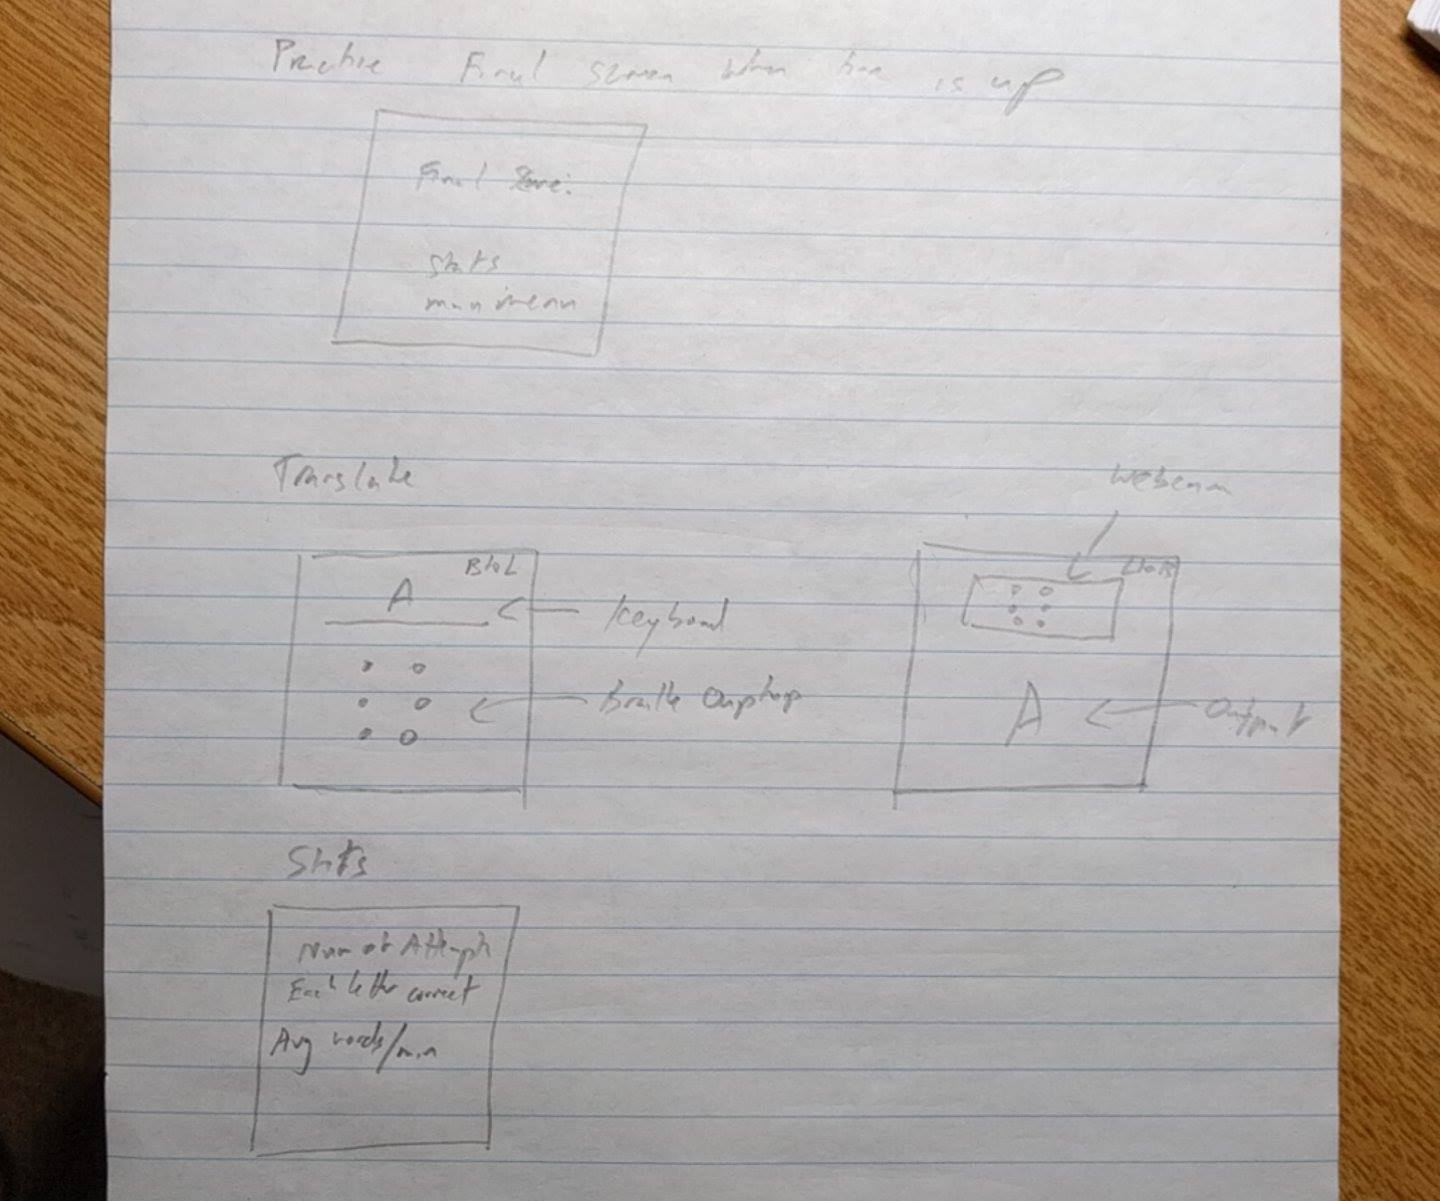 Practice Final screen when time is up
Final Score:
stats
Translate
Webcam
BtoL
A
Keyboard
Braille
A
Output
Stats
Num of Attempts
Each letter correct
Avg words/min